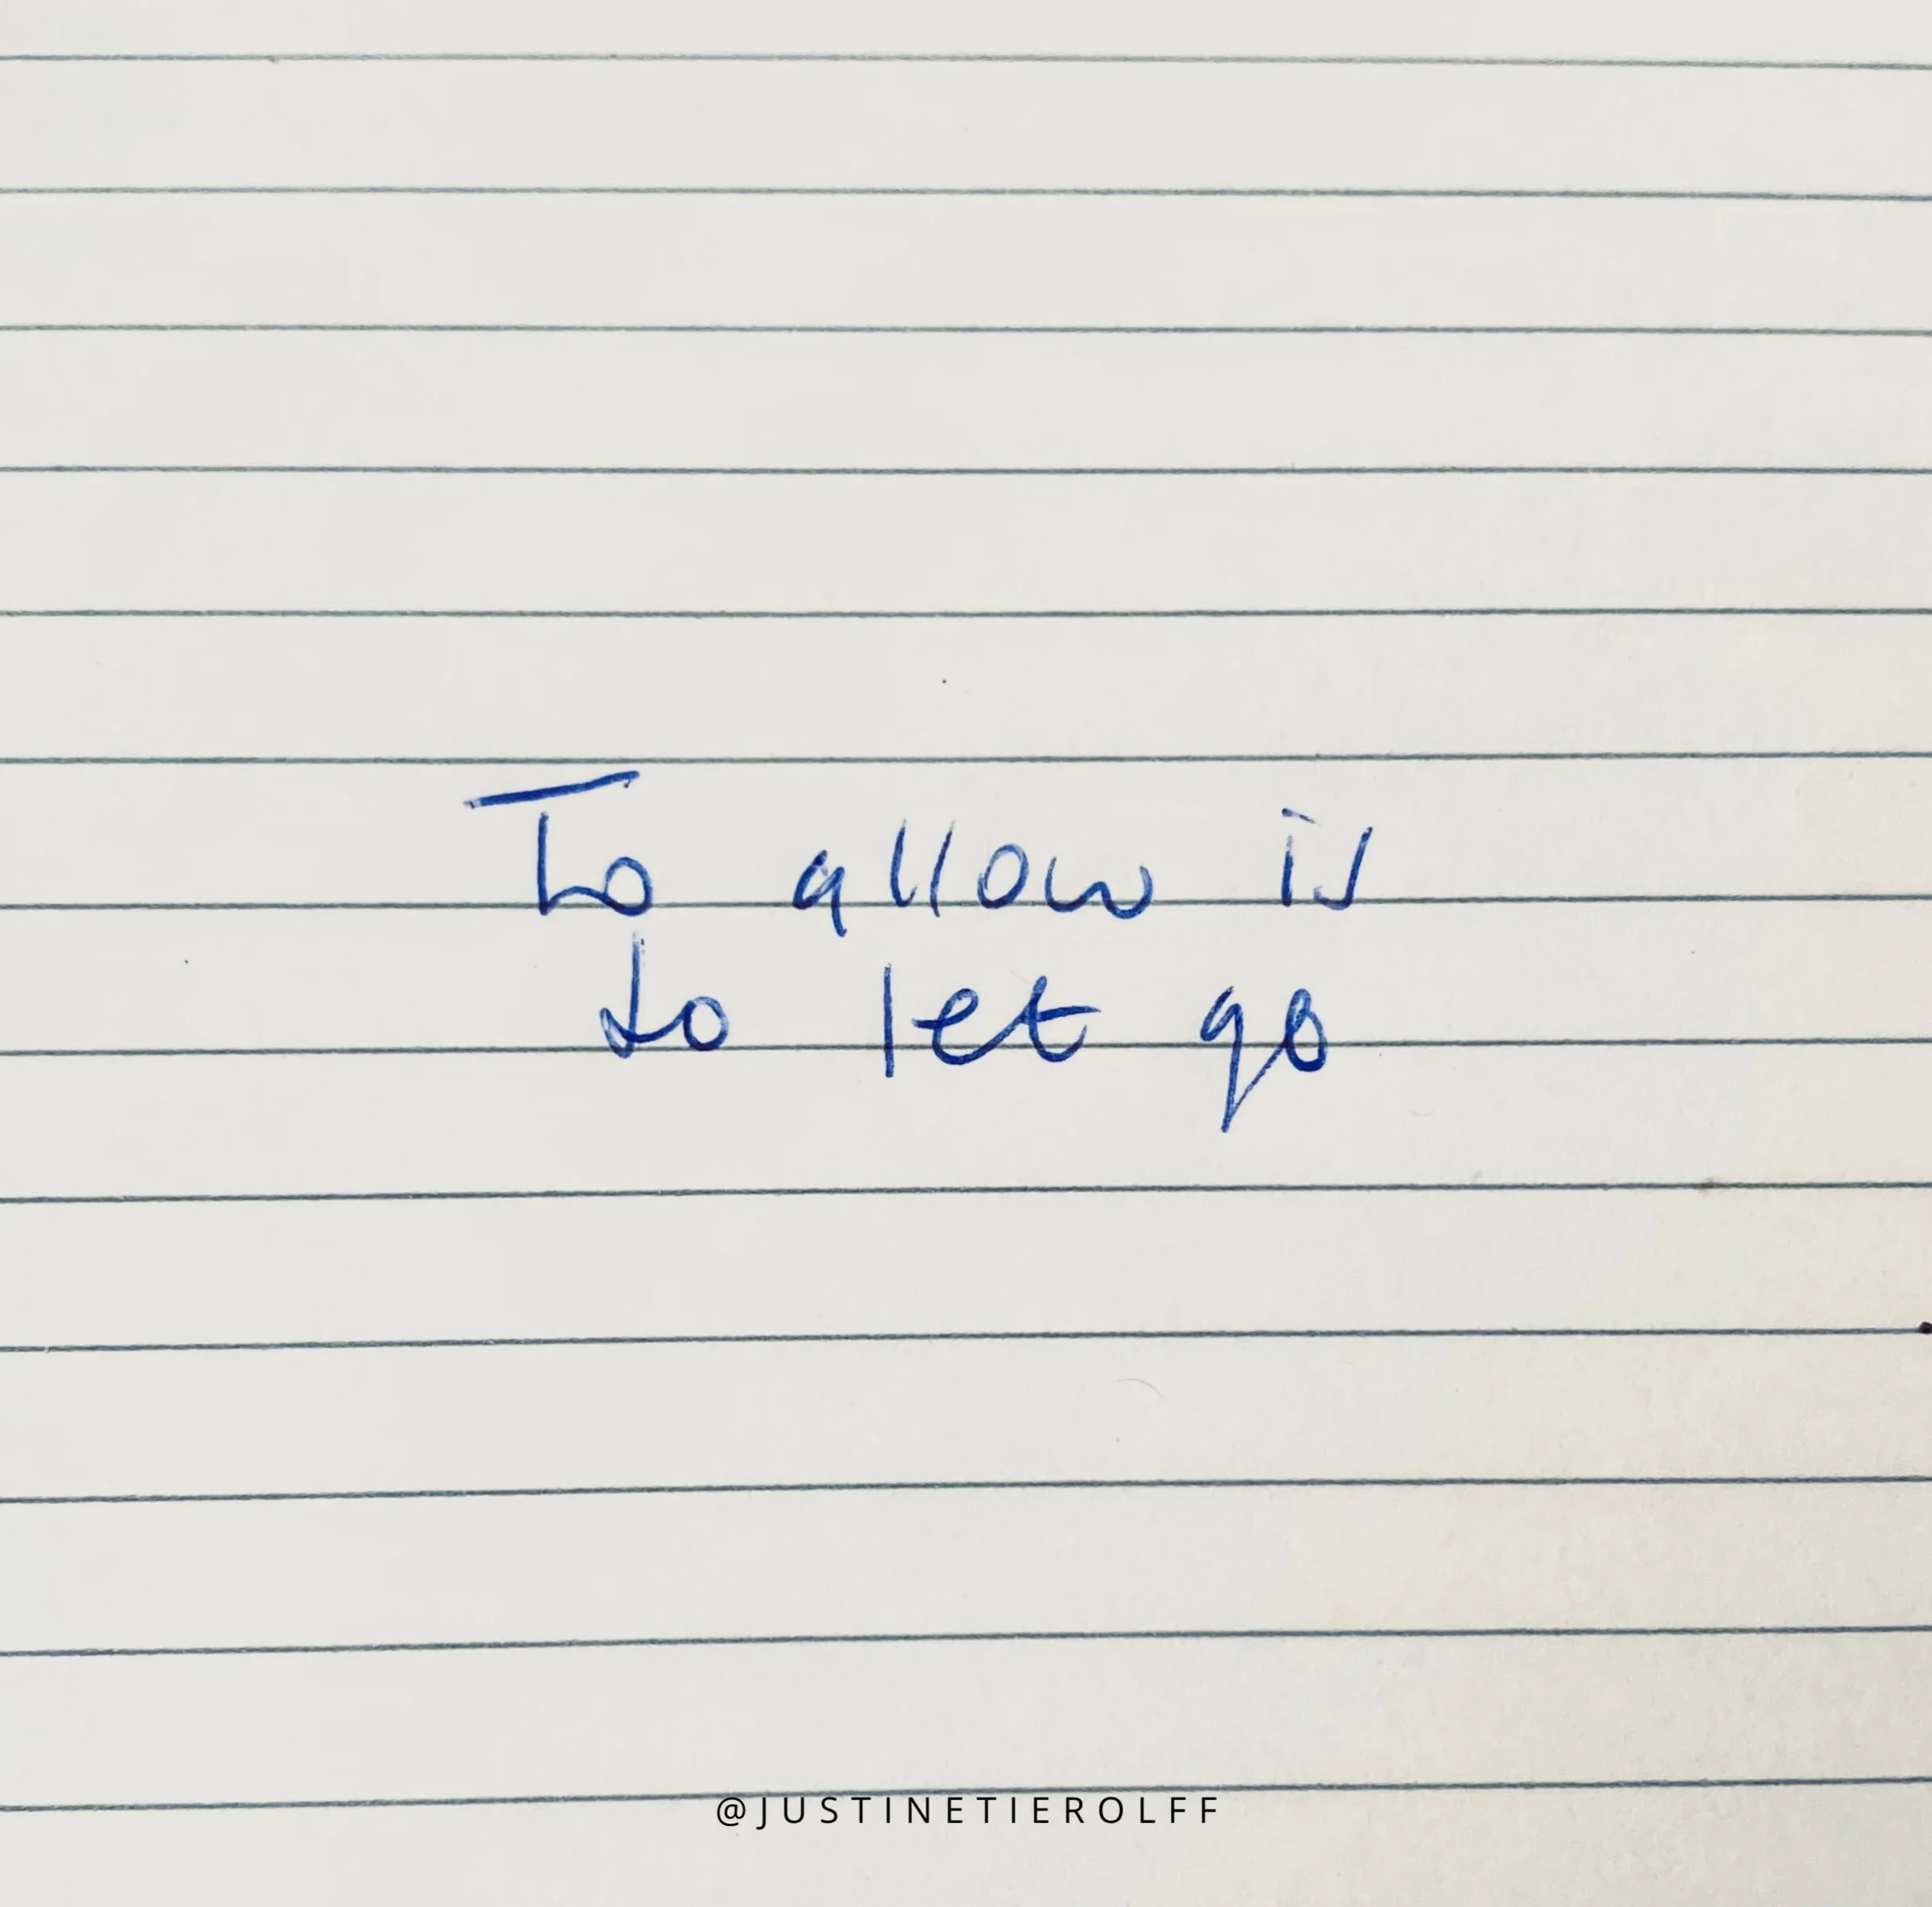 To allow is
to let go
@JUSTINETIEROLFF